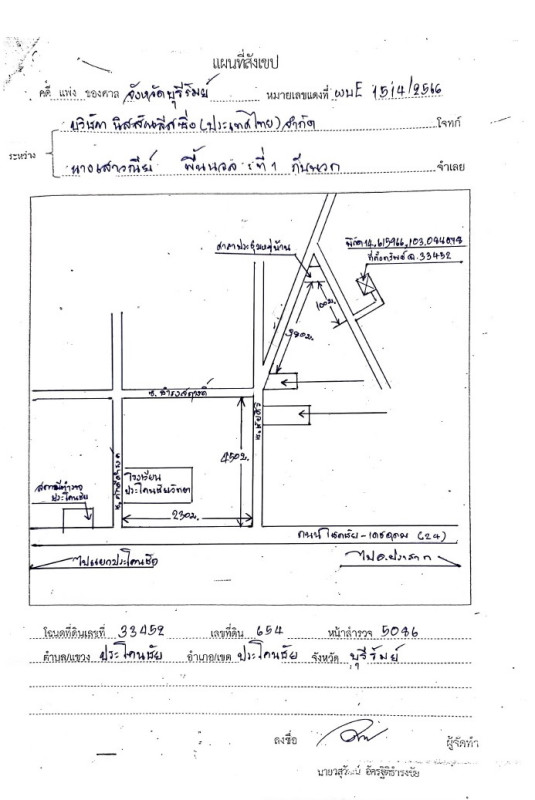 แผนที่สังเขป
คดี แพ่ง ของศาล จังหวัดบุรีรัมย์ หมายเลขแดงที่ ผบE 1514/2566
บริษัท นิสสัน ลีสซิ่ง (ประเทศไทย) จำกัด โจทก์
ระหว่าง
นางเสาวณีย์ ที่ 1 กับพวก จำเลย
ศาลาประชุมหมู่บ้าน
พิกัด 14.615966,103.094098
ที่ตั้งทรัพย์ ฉ.33452
100ม.
380ม.
450ม.
โรงเรียน
ประโคนชัยวิทยา
สถานีตำรวจ
ประโคนชัย
230ม.
ถนนโชคชัย-เดชอุดม (24)
ไปแยกประโคนชัย
ไปอ.ปราสาท
โฉนดที่ดินเลขที่ 33452 เลขที่ดิน 654 หน้าสำรวจ 5086
ตำบล/แขวง ประโคนชัย อำเภอ/เขต ประโคนชัย จังหวัด บุรีรัมย์
ลงชื่อ ผู้จัดทำ
นายวสุวัฒน์ อัครฐิติธำรงชัย